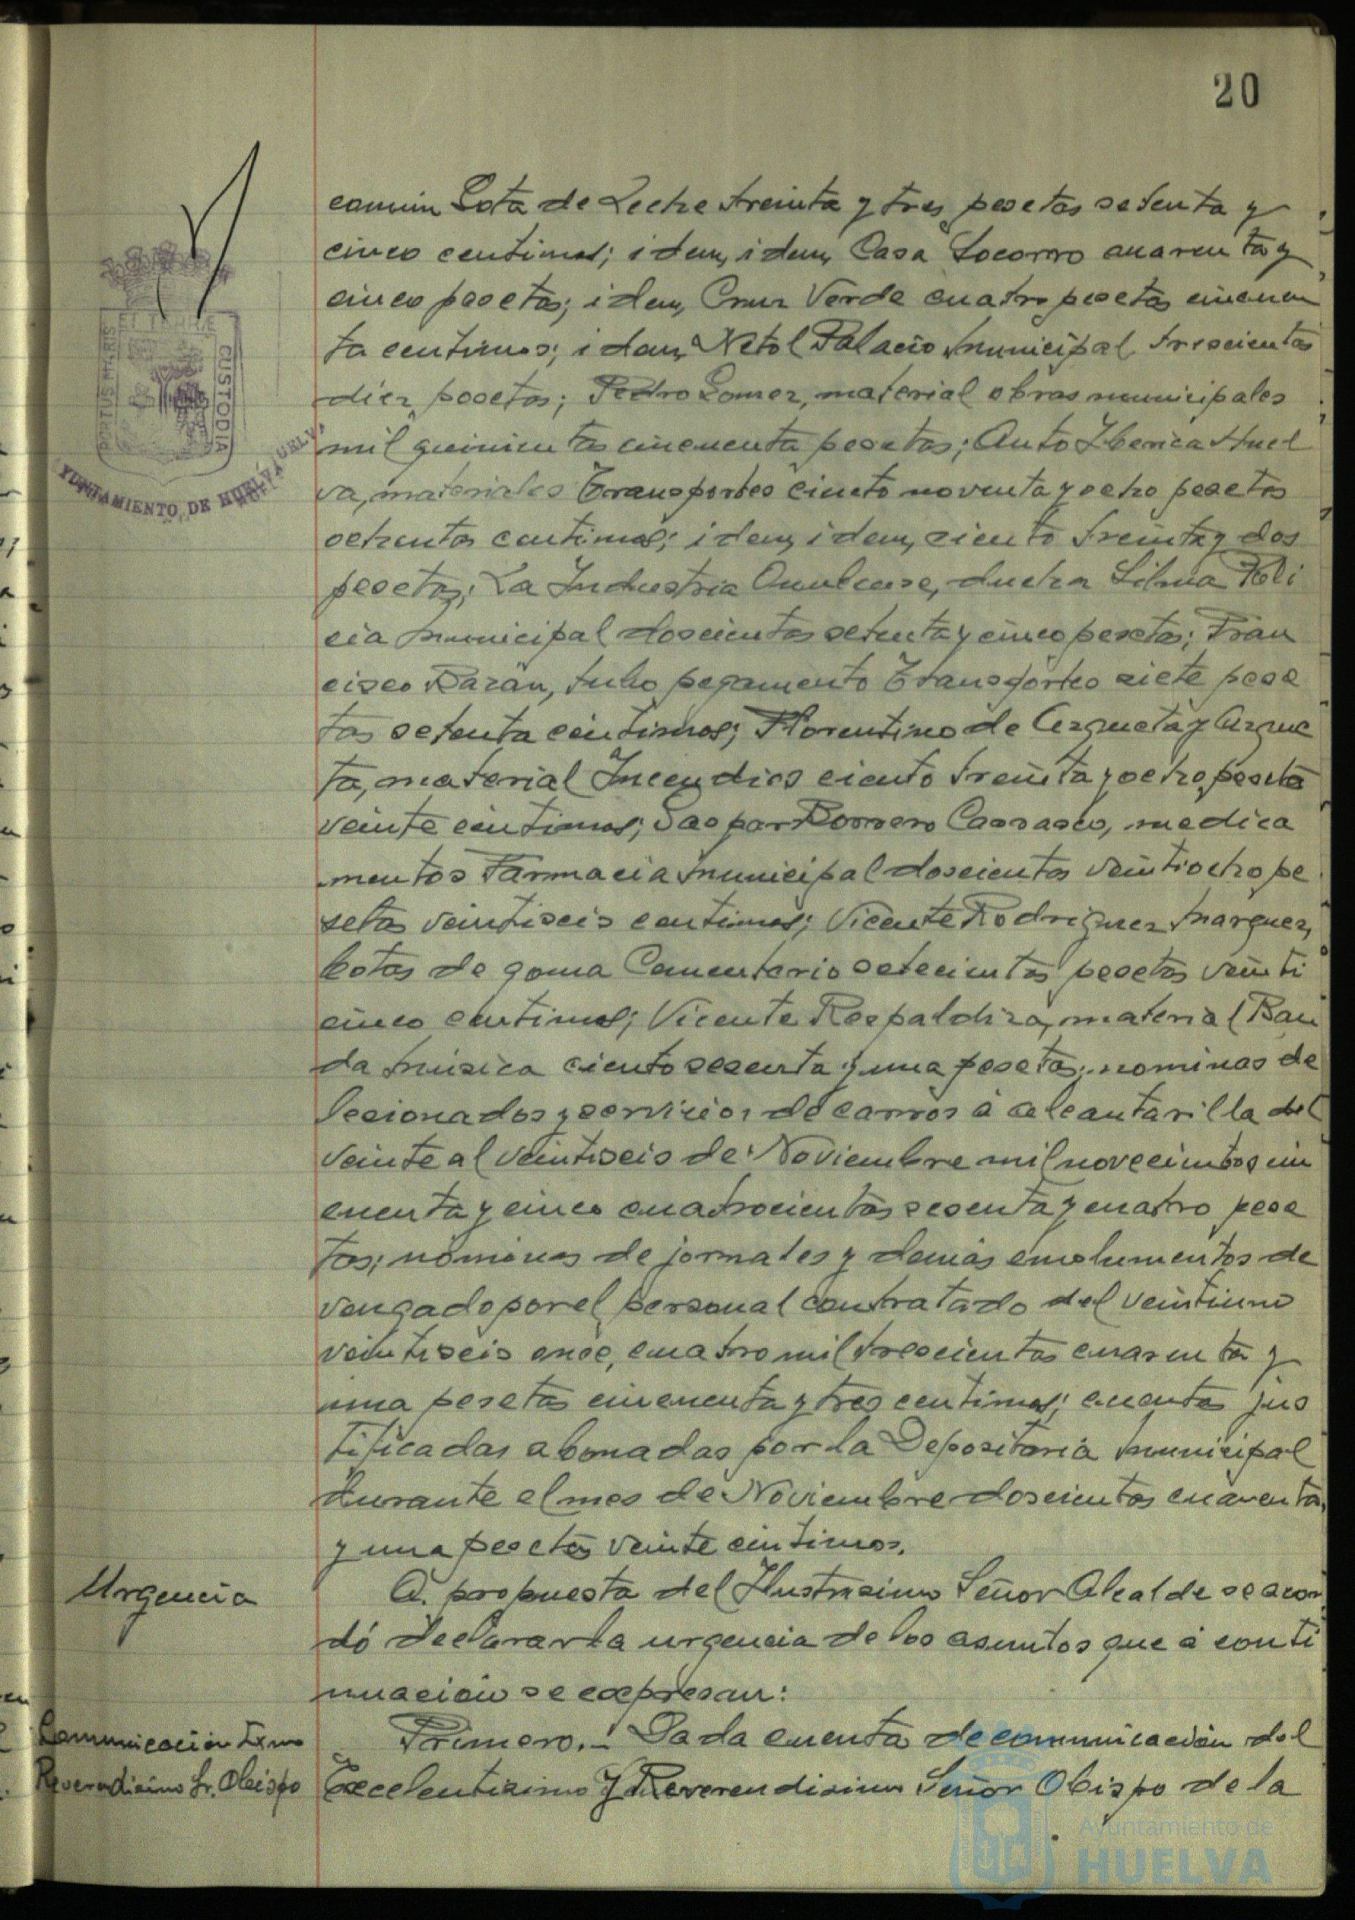 20
comun Gota de Leche treinta y tres pesetas setenta y
cinco centimos; idem, idem, Casa Socorro cuarenta y
cinco pesetas; idem, Cruz Verde cuatro pesetas cincuen
ta centimos; idem, Netol Palacio Municipal trescientas
diez pesetas; Pedro Gomez, material obras municipales
mil quinientas cincuenta pesetas; Auto Iberica Huel
va, materiales Transportes ciento noventa y ocho pesetas
ochenta centimos; idem, idem, ciento treinta y dos
pesetas; La Industria Onubense, ducha Poli
cia Municipal doscientas setenta y cinco pesetas; Fran
cisco Bazán, tubo pegamento Transportes siete pese
tas setenta centimos; Florentino de Azqueta y Azque
ta, material Incendios ciento treinta y ocho pesetas
veinte centimos; Gaspar Borrero Carrasco, medica
mentos Farmacia Municipal doscientas veintiocho pe
setas veintiseis centimos; Vicente Rodriguez Marquez,
botas de goma Cementerio setecientas pesetas veinti
cinco centimos; Vicente Respaldiza, material Ban
da Música ciento sesenta y una pesetas; nominas de
lecionados y servicios de carros á alcantarilla del
veinte al veintiseis de Noviembre mil novecientos cin
cuenta y cinco cuatrocientas sesenta y cuatro pese
tas; nominas de jornales y demás emolumentos de
vengado por el personal contratado del veintiuno
veintiseis once, cuatro mil trescientas cuarenta y
una pesetas cincuenta y tres centimos; cuentas jus
tificadas abonadas por la Depositaria Municipal
durante el mes de Noviembre doscientas cuarenta
y una pesetas veinte centimos.
Urgencia
A propuesta del Ilustrisimo Señor Alcalde se acor
dó declarar la urgencia de los asuntos que á conti
nuación se expresan:
Comunicación Exmo
Reverendisimo Sr. Obispo
Primero.- Dada cuenta de comunicación del
Excelentisimo y Reverendisimo Señor Obispo de la
PORTUS MARIS
ET TERRÆ
CUSTODIA
AYUNTAMIENTO DE HUELVA
Ayuntamiento de
HUELVA